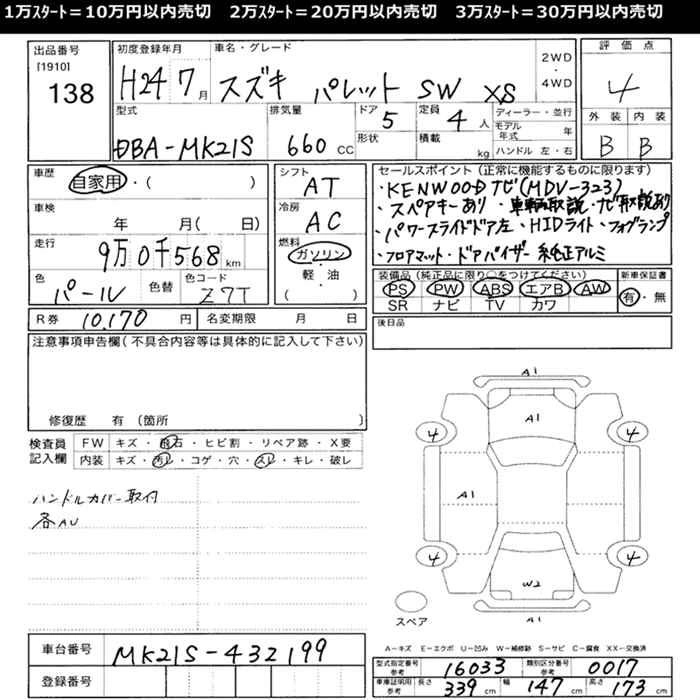 1万ｽﾀｰﾄ＝10万円以内売切　2万ｽﾀｰﾄ＝20万円以内売切　3万ｽﾀｰﾄ＝30万円以内売切
出品番号
[1910]
138
初度登録年月
H24 7月
車名・グレード
スズキ パレット SW XS
2WD
・
4WD
評価点
4
型式
DBA-MK21S
排気量
660 CC
ドア
5
形状
定員
4人
積載
kg
ディーラー・並行
モデル年式 年
ハンドル 左・右
外装 内装
B B
車歴
自家用・( )
車検
年 月( 日)
走行
9万0千568km
色
パール
色替
色コード
Z7T
シフト
AT
冷房
AC
燃料
ガソリン
軽・油
( )
セールスポイント (正常に機能するものに限ります)
・KENWOODナビ(MDV-323)
・スペアキーあり・車輌取説・ナビ取説あり
・パワースライドドア左・HIDライト・フォグランプ
・フロアマット・ドアバイザー 純正アルミ
装備品 (純正品に限り○をつけてください)
PS PW ABS エアB AW
SR ナビ TV カワ
新車保証書
有・無
R券 10,170円 名変期限 月 日
後日品
注意事項申告欄(不具合内容等は具体的に記入して下さい)
修復歴 有 (箇所 )
検査員記入欄
FW キズ・飛石・ヒビ割・リペア跡・X要
内装 キズ・汚レ・コゲ・穴・スレ・キレ・破レ
ハンドルカバー取付
各AU
A1
A1
4 4
A1
4 4
W2
スペア
A1
A－キズ E－エクボ U－凹み W－補修跡 S－サビ C－腐食 XX－交換済
車台番号 MK21S-432199
登録番号
型式指定番号 参考 16033 類別区分番号 参考 0017
車庫証明用 参考 長さ 339cm 幅 147cm 高さ 173cm